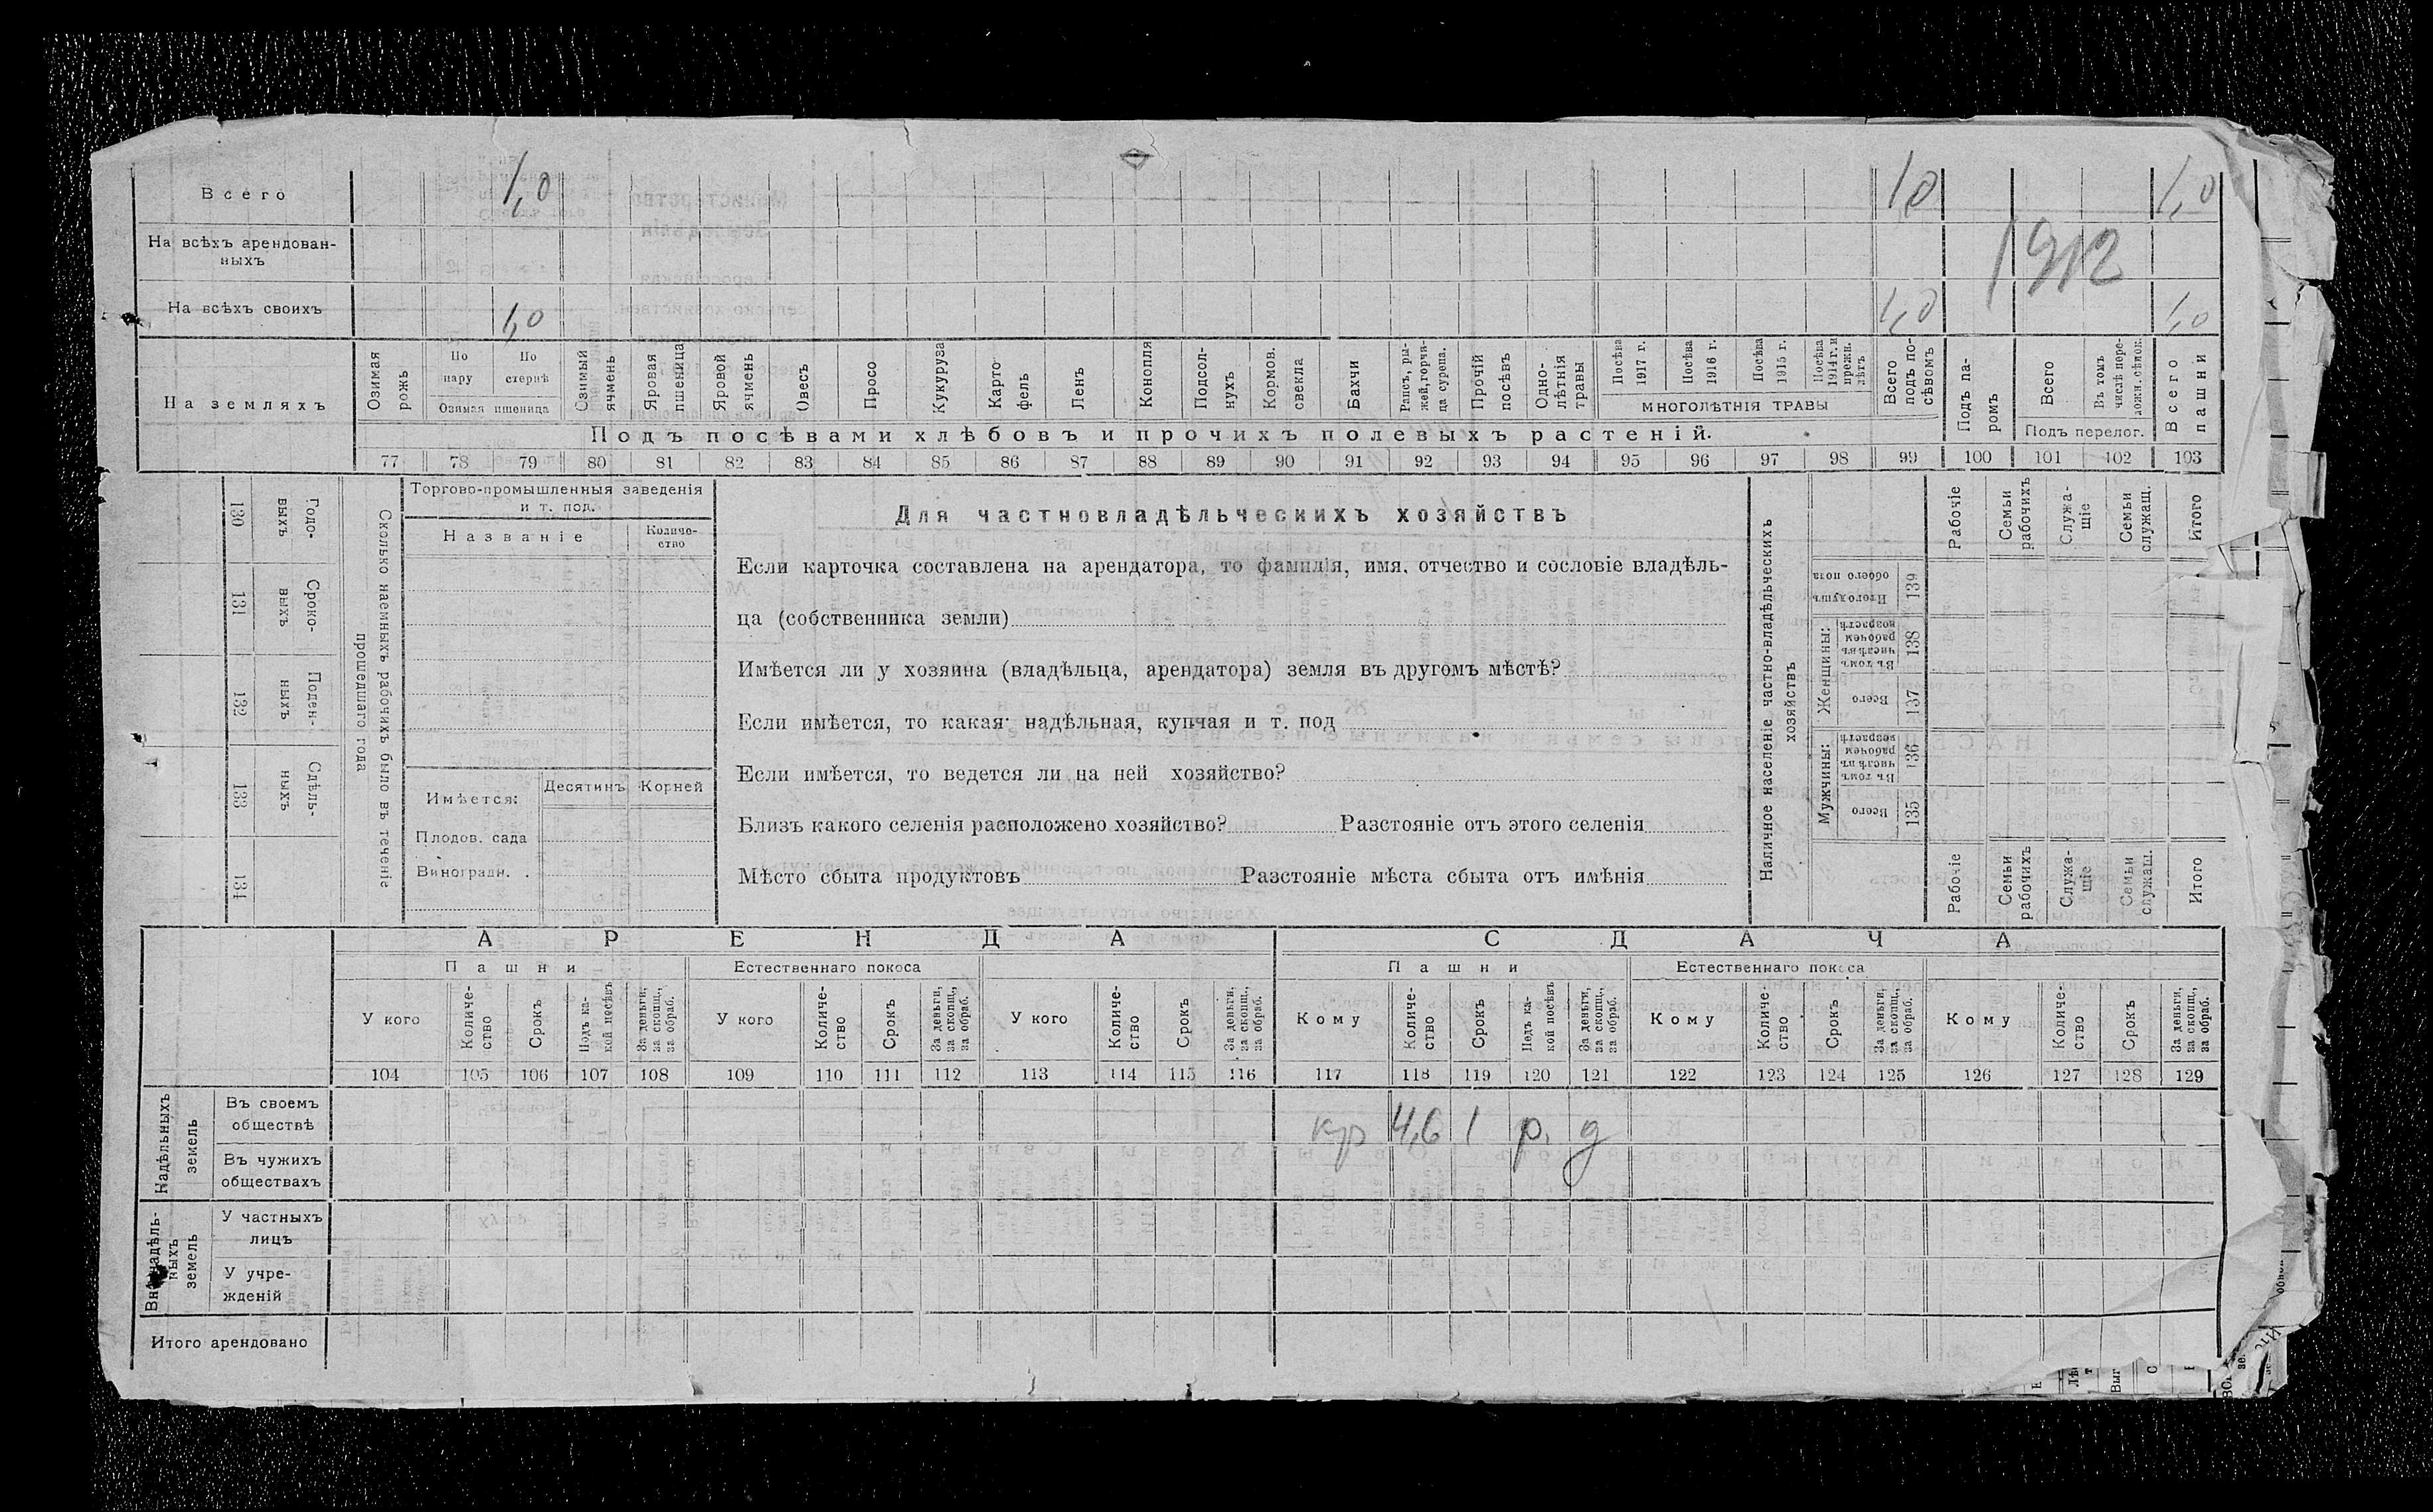 Всего 1,0 1,0 1,0
На всѣхъ арендован-
ныхъ
1912
На всѣхъ своихъ 1,0 1,0 1,0
На земляхъ
Озимая
рожь
По
пару
По
стернѣ
Озимая пшеница
Озимый
ячмень
Яровая
пшеница
Яровой
ячмень
Овесъ
Просо
Кукуруза
Карто
фель
Ленъ
Конопля
Подсол-
нухъ
Кормов.
свекла
Бахчи
Рапсъ, ры-
жей, горчи-
ца сурепа.
Прочій
посѣвъ
Одно-
лѣтнія
травы
Посѣва
1917 г.
Посѣва
1916 г.
Посѣва
1915 г.
Посѣва
1914 г. и
прежн.
лѣтъ
МНОГОЛѢТНІЯ ТРАВЫ
Всего
подъ по-
сѣвомъ
Подъ па-
ромъ
Всего
Въ томъ
числѣ пере-
ложн. сѣнок.
Подъ перелог.
Всего
пашни
Подъ посѣвами хлѣбовъ и прочихъ полевыхъ растеній.
77 78 79 80 81 82 83 84 85 86 87 88 89 90 91 92 93 94 95 96 97 98 99 100 101 102 103
Годо-
выхъ
130
Сроко-
выхъ
131
Поден-
ныхъ
132
Сдѣль-
ныхъ
133
134
Сколько наемныхъ рабочихъ было въ теченіе
прошедшаго года
Торгово-промышленныя заведенія
и т. под.
Названіе
Количе-
ство
Имѣется:
Десятинъ
Корней
Плодов. сада
Виноградн. .
Для частновладѣльческихъ хозяйствъ
Если карточка составлена на арендатора, то фамилія, имя, отчество и сословіе владѣль-
ца (собственника земли)
Имѣется ли у хозяина (владѣльца, арендатора) земля въ другомъ мѣстѣ?
Если имѣется, то какая: надѣльная, купчая и т. под
Если имѣется, то ведется ли на ней хозяйство?
Близъ какого селенія расположено хозяйство? Разстояніе отъ этого селенія
Мѣсто сбыта продуктовъ Разстояніе мѣста сбыта отъ имѣнія
Наличное населеніе частно-владѣльческихъ
хозяйствъ
Рабочіе
Семьи
рабочихъ
Служа-
щіе
Семьи
служащ.
Итого
Итого душъ
обоего пола
139
Женщины:
Въ томъ
числѣ въ
рабочем
возрастѣ
138
Всего
137
Мужчины:
Въ томъ
числѣ въ
рабочем
возрастѣ
136
Всего
135
Рабочіе
Семьи
рабочихъ
Служа-
щіе
Семьи
служащ.
Итого
АРЕНДА
СДАЧА
Пашни
Естественнаго покоса
Пашни
Естественнаго покоса
У кого
Количе-
ство
Срокъ
Подъ ка-
кой посѣвъ
За деньги,
за скопщ.,
за обраб.
У кого
Количе-
ство
Срокъ
За деньги,
за скопщ.,
за обраб.
У кого
Количе-
ство
Срокъ
За деньги,
за скопщ.,
за обраб.
Кому
Количе-
ство
Срокъ
Подъ ка-
кой посѣвъ
За деньги,
за скопщ.,
за обраб.
Кому
Количе
ство
Срокъ
За деньги,
за скопщ.,
за обраб.
Кому
Количе-
ство
Срокъ
За деньги,
за скопщ.,
за обраб.
104 105 106 107 108 109 110 111 112 113 114 115 116 117 118 119 120 121 122 123 124 125 126 127 128 129
Надѣльныхъ
земель
Въ своемъ
обществѣ
кр 4,6 1 р. д
Въ чужихъ
обществахъ
Внѣнадѣль-
ныхъ
земель
У частныхъ
лицъ
У учре-
жденій
Итого арендовано